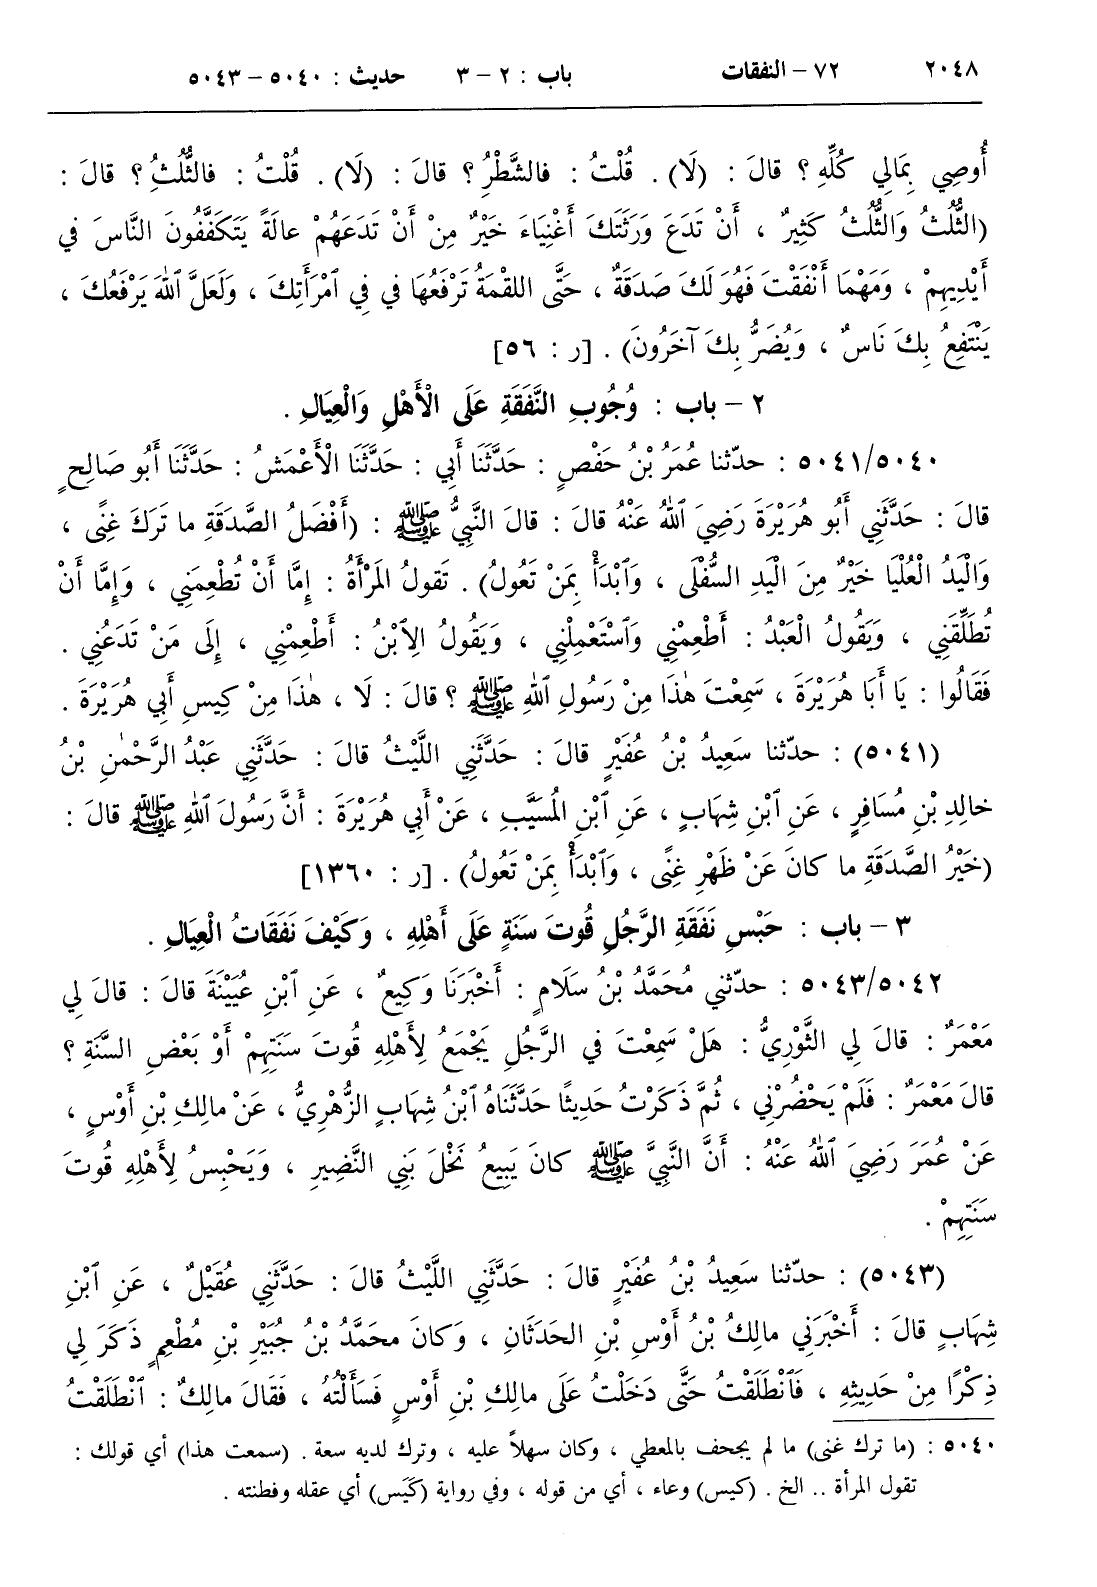 ٢٠٤٨ ٧٢ – النفقات باب : ٢ – ٣ حديث : ٥٠٤٠ – ٥٠٤٣
أُوصِي بِمَالِي كُلِّهِ ؟ قالَ : (لَا) . قُلْتُ : فالشَّطْرُ ؟ قالَ : (لَا) . قُلْتُ : فالثُّلُثُ ؟ قالَ :
(الثُّلُثُ وَالثُّلُثُ كَثِيرٌ ، أَنْ تَدَعَ وَرَثَتَكَ أَغْنِيَاءَ خَيْرٌ مِنْ أَنْ تَدَعَهُمْ عالَةً يَتَكَفَّفُونَ النَّاسَ في
أَيْدِيهِمْ ، وَمَهْمَا أَنْفَقْتَ فَهُوَ لَكَ صَدَقَةٌ ، حَتَّى اللقْمَةُ تَرْفَعُهَا في فِي ٱمْرَأَتِكَ ، وَلَعَلَّ ٱللهَ يَرْفَعُكَ ،
يَنْتَفِعُ بِكَ نَاسٌ ، وَيُضَرُّ بِكَ آخَرُونَ) . [ر : ٥٦]
٢ – باب : وُجُوبِ النَّفَقَةِ عَلَى الْأَهْلِ وَالْعِيَالِ .
٥٠٤١/٥٠٤٠ : حدّثنا عُمَرُ بْنُ حَفْصٍ : حَدَّثَنَا أَبِي : حَدَّثَنَا الْأَعْمَشُ : حَدَّثَنَا أَبُو صَالِحٍ
قالَ : حَدَّثَنِي أَبُو هُرَيْرَةَ رَضِيَ ٱللهُ عَنْهُ قالَ : قالَ النَّبِيُّ ﷺ : (أَفْضَلُ الصَّدَقَةِ ما تَرَكَ غِنًى ،
وَالْيَدُ الْعُلْيَا خَيْرٌ مِنَ الْيَدِ السُّفْلَى ، وَٱبْدَأْ بِمَنْ تَعُولُ) . تَقولُ المَرْأَةُ : إِمَّا أَنْ تُطْعِمَنِي ، وَإِمَّا أَنْ
تُطَلِّقَنِي ، وَيَقُولُ الْعَبْدُ : أَطْعِمْنِي وَٱسْتَعْمِلْنِي ، وَيَقُولُ الِٱبْنُ : أَطْعِمْنِي ، إِلَى مَنْ تَدَعُنِي .
فَقَالُوا : يَا أَبَا هُرَيْرَةَ ، سَمِعْتَ هٰذَا مِنْ رَسُولِ ٱللهِ ﷺ ؟ قالَ : لَا ، هٰذَا مِنْ كِيسِ أَبِي هُرَيْرَةَ .
(٥٠٤١) : حدّثنا سَعِيدُ بْنُ عُفَيْرٍ قالَ : حَدَّثَنِي اللَّيْثُ قالَ : حَدَّثَنِي عَبْدُ الرَّحْمٰنِ بْنُ
خالِدِ بْنِ مُسَافِرٍ ، عَنِ ٱبْنِ شِهَابٍ ، عَنِ ٱبْنِ المُسَيَّبِ ، عَنْ أَبِي هُرَيْرَةَ : أَنَّ رَسُولَ ٱللهِ ﷺ قالَ :
(خَيْرُ الصَّدَقَةِ ما كانَ عَنْ ظَهْرِ غِنًى ، وَٱبْدَأْ بِمَنْ تَعُولُ) . [ر : ١٣٦٠]
٣ – باب : حَبْسِ نَفَقَةِ الرَّجُلِ قُوتَ سَنَةٍ عَلَى أَهْلِهِ ، وَكَيْفَ نَفَقَاتُ الْعِيَالِ .
٥٠٤٣/٥٠٤٢ : حدّثني مُحَمَّدُ بْنُ سَلَامٍ : أَخْبَرَنَا وَكِيعٌ ، عَنِ ٱبْنِ عُيَيْنَةَ قالَ : قالَ لِي
مَعْمَرٌ : قالَ لِي الثَّوْرِيُّ : هَلْ سَمِعْتَ في الرَّجُلِ يَجْمَعُ لِأَهْلِهِ قُوتَ سَنَتِهِمْ أَوْ بَعْضِ السَّنَةِ ؟
قالَ مَعْمَرٌ : فَلَمْ يَحْضُرْنِي ، ثُمَّ ذَكَرْتُ حَدِيثًا حَدَّثَنَاهُ ٱبْنُ شِهَابٍ الزُّهْرِيُّ ، عَنْ مالِكِ بْنِ أَوْسٍ ،
عَنْ عُمَرَ رَضِيَ ٱللهُ عَنْهُ : أَنَّ النَّبِيَّ ﷺ كانَ يَبِيعُ نَخْلَ بَنِي النَّضِيرِ ، وَيَحْبِسُ لِأَهْلِهِ قُوتَ
سَنَتِهِمْ .
(٥٠٤٣) : حدّثنا سَعِيدُ بْنُ عُفَيْرٍ قالَ : حَدَّثَنِي اللَّيْثُ قالَ : حَدَّثَنِي عُقَيْلٌ ، عَنِ ٱبْنِ
شِهَابٍ قالَ : أَخْبَرَنِي مالِكُ بْنُ أَوْسِ بْنِ الحَدَثَانِ ، وَكانَ محمَّدُ بْنُ جُبَيْرِ بْنِ مُطْعِمٍ ذَكَرَ لِي
ذِكْرًا مِنْ حَدِيثِهِ ، فَٱنْطَلَقْتُ حَتَّى دَخَلْتُ عَلَى مالِكِ بْنِ أَوْسٍ فَسَأَلْتُهُ ، فَقَالَ مالِكٌ : ٱنْطَلَقْتُ
٥٠٤٠ : (ما ترك غنى) ما لم يجحف بالمعطي ، وكان سهلاً عليه ، وترك لديه سعة . (سمعت هذا) أي قولك :
تقول المرأة .. الخ . (كيس) وعاء ، أي من قوله ، وفي رواية (كَيَس) أي عقله وفطنته .